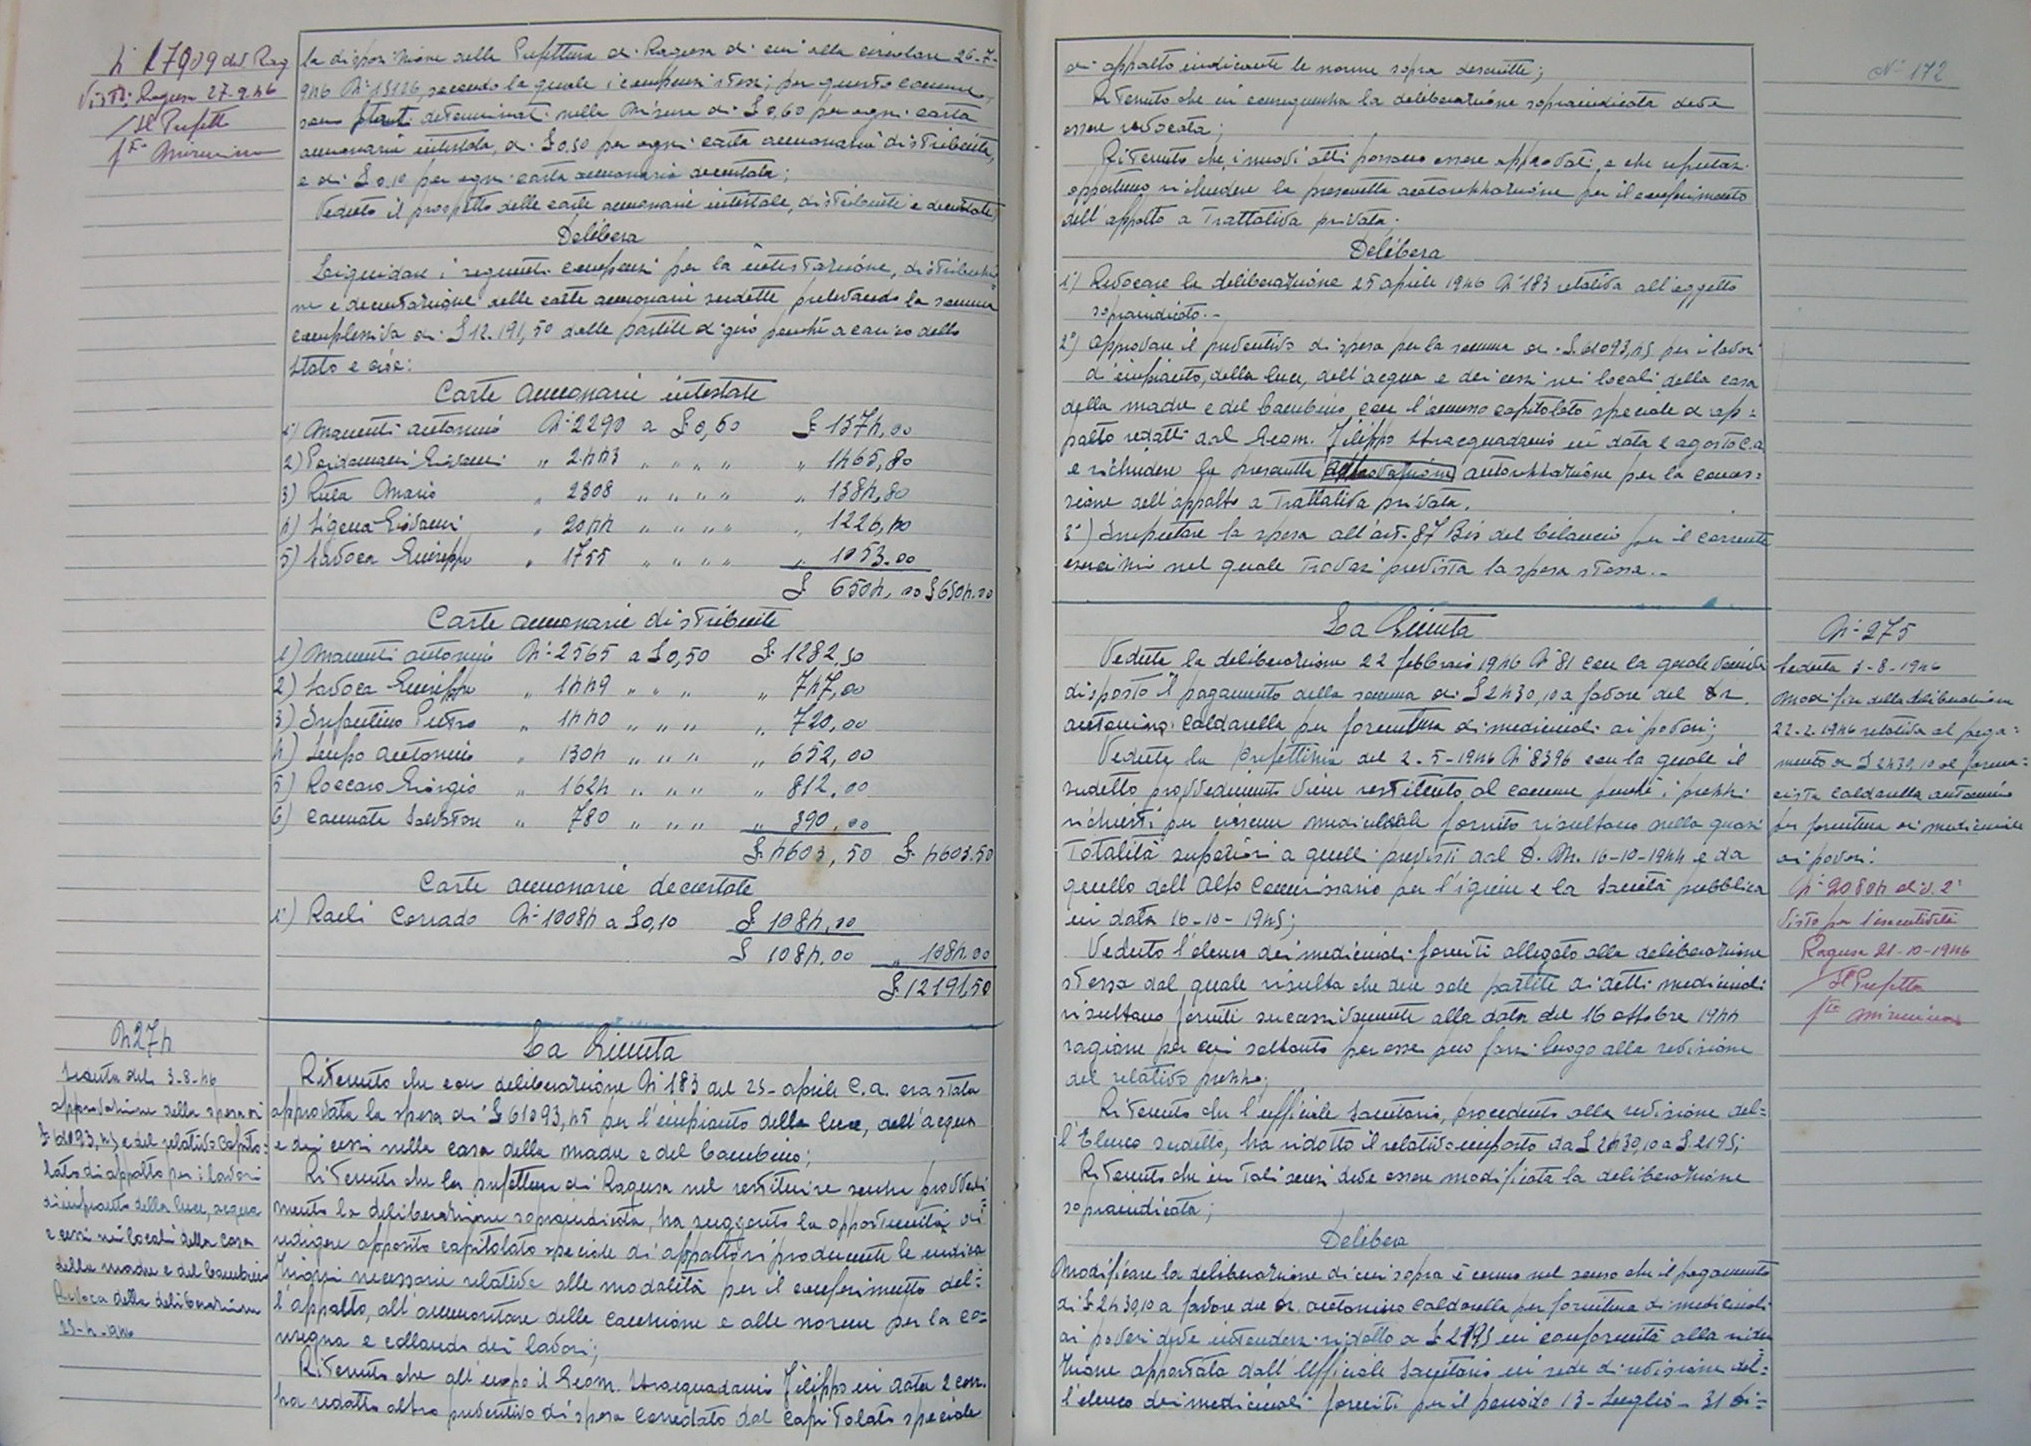 N° 17909 del Rag
Visto: Ragusa 27-9-46
Il Prefetto
Fto
la disposizione della Prefettura di Ragusa di cui alla circolare 26-7-
946 N° 13126, secondo la quale i compensi stessi, per questo comune,
sono determinati nella misura di £ 0,60 per ogni carta
annonaria intestata, di £ 0,50 per ogni carta annonaria distribuita,
e di £ 0,10 per ogni carta annonaria decurtata;
Veduto il prospetto delle carte annonarie intestate, distribuite e decurtate
Delibera
Liquidare i seguenti compensi per la intestazione, distribuzio
ne e decurtazione delle carte annonarie sudette prelevando la somma
complessiva di £ 12.191,50 dalle partite di giro perchè a carico dello
Stato e cioè:
Carte annonarie intestate
1°) Manenti Antonino N° 2290 a £ 0,60 £ 1374,00
2) Giovanni " 2443 " " " " " 1465,80
3) Ruta Mario " 2308 " " " " " 1384,80
4) Ligena Giovanni " 2044 " " " " " 1226,40
5) Savoca Giuseppe " 1755 " " " " " 1053.00
£ 6504,00 £ 6504.00
Carte annonarie distribuite
1) Manenti Antonino N° 2565 a £ 0,50 £ 1282,50
2) Savoca Giuseppe " 1449 " " " " 747,00
3) Infantino Pietro " 1440 " " " " 720,00
4) Lupo Antonino " 1304 " " " " 652,00
5) Roccaro Giorgio " 1624 " " " " 812,00
6) Cannata Salvatore " 780 " " " " 390,00
£ 4603,50 £ 4603.50
Carte annonarie decurtate
1°) Raeli Corrado N° 10084 a £ 0,10 £ 1084,00
£ 1084.00 " 1084.00
£ 12191,50
N 274
Seduta del 3-8-46
approvazione della spesa di
£ 61093,45 e del relativo capito-
lato di appalto per i lavori
di impianto della luce, acqua
e cessi nei locali della casa
della madre e del bambino
Revoca della deliberazione
25-4-1946
La Giunta
Ritenuto che con deliberazione N° 183 del 25-aprile c.a. era stata
approvata la spesa di £ 61093,45 per l'impianto della luce, dell'acqua
e dei cessi nella casa della madre e del bambino;
Ritenuto che la prefettura di Ragusa nel restituire senza provvedi
mento la deliberazione sopraindicata, ha suggerito la opportunità di
redigere apposito capitolato speciale di appalto riproducente le indica
zioni necessarie relative alle modalità per il conferimento del-
l'appalto, all'ammontare della cauzione e alle norme per la co=
nsegna e collaudo dei lavori;
Ritenuto che all'uopo il Geom. Stracquadanio Filippo in data 2 corr.
ha redatto altro preventivo di spesa corredato dal capitolato speciale
N° 172
di appalto indicante le norme sopra descritte;
Ritenuto che in conseguenza la deliberazione sopraindicata deve
essere revocata;
Ritenuto che, i nuovi atti possono essere approvati e che reputasi
opportuno richiedere la prescritta autorizzazione per il conferimento
dell'appalto a trattativa privata.
Delibera
1°) Revocare la deliberazione 25 aprile 1946 N° 183 relativa all'oggetto
sopraindicato.-
2°) Approvare il preventivo di spesa per la somma di £. 61093,45 per i lavori
d'impianto, della luce, dell'acqua e dei cessi nei locali della casa
della madre e del bambino, con l'annesso capitolato speciale d'ap=
palto redatti dal Geom. Filippo Stracquadanio in data 2 agosto c.a
e richiedere la prescritta approvazione autorizzazione per la conces-
sione dell'appalto a trattativa privata.
3°) Imputare la spesa all'art. 87 Bis del bilancio per il corrente
esercizio nel quale trovasi prevista la spesa stessa.-
La Giunta
Veduta la deliberazione 22 febbraio 1946 N° 81 con la quale veniva
disposto il pagamento della somma di £ 2430,10 a favore del Dr.
Antonino Caldarella per fornitura di medicinali ai poveri;
Veduta la Prefettizia del 2-5-1946 N° 8396 con la quale il
sudetto provvedimento viene restituito al comune perchè i prezzi
richiesti per ciascun medicinale fornito risultano nella quasi
totalità superiori a quelli previsti dal D. M. 16-10-1944 e da
quello dell'Alto Commissario per l'igiene e la Sanità pubblica
in data 16-10-1945;
Veduto l'elenco dei medicinali forniti allegato alla deliberazione
stessa dal quale risulta che due sole partite di detti medicinali
risultano forniti successivamente alla data del 16 ottobre 1944
ragione per cui soltanto per esse può farsi luogo alla revisione
del relativo prezzo;
Ritenuto che l'ufficiale Sanitario, procedendo alla revisione del=
l'Elenco sudetto, ha ridotto il relativo importo da £ 2430,10 a £ 2195;
Ritenuto che in tali sensi deve essere modificata la deliberazione
sopraindicata;
Delibera
Modificare la deliberazione di cui sopra è cenno nel senso che il pagamento
di £ 2430,10 a favore del Dr. Antonino Caldarella per fornitura di medicinali
ai poveri deve intendersi ridotto a £ 2195 in conformità alla ridu
zione apportata dall'Ufficiale Sanitario in sede di revisione del=
l'elenco dei medicinali forniti per il periodo 13-Luglio - 31 Di=
N° 275
Seduta 3-8-1946
Modifica della deliberazione
22-2-1946 relativa al paga=
mento di £ 2430,10 al farma=
cista Caldarella Antonino
per fornitura di medicinali
ai poveri.
N° 20804 div. 2°
Visto per l'esecutività
Ragusa 21-10-1946
Il Prefetto
Fto